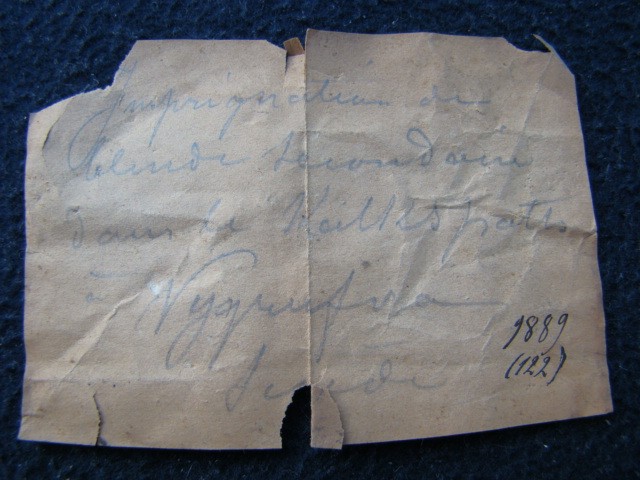 Impregnation de
blende secondaire
dans le Kalkspath
à Nygrufva
Suède
1889
(122)